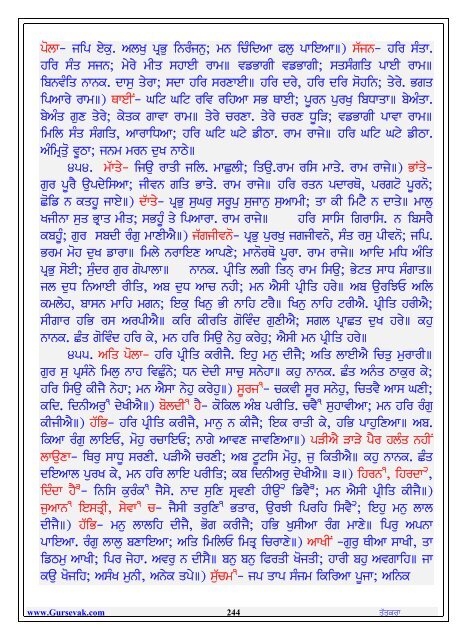 ਪੋਲਾ- ਜਪਿ ਏਕੁ. ਅਲਖੁ ਪ੍ਰਭੁ ਨਿਰੰਜਨੁ; ਮਨ ਚਿੰਦਿਆ ਫਲੁ ਪਾਇਆ॥) ਸੱਜਨ- ਹਰਿ ਸੰਤਾ.
ਹਰਿ ਸੰਤ ਸਜਨ; ਮੇਰੇ ਮੀਤ ਸਹਾਈ ਰਾਮ॥ ਵਡਭਾਗੀ ਵਡਭਾਗੀ; ਸਤਸੰਗਤਿ ਪਾਈ ਰਾਮ॥
ਬਿਨਵੰਤਿ ਨਾਨਕ. ਦਾਸੁ ਤੇਰਾ; ਸਦਾ ਹਰਿ ਸਰਣਾਈ॥ ਹਰਿ ਦਰੇ, ਹਰਿ ਦਰਿ ਸੋਹਨਿ; ਤੇਰੇ. ਭਗਤ
ਪਿਆਰੇ ਰਾਮ॥) ਥਾਈਂ- ਘਟਿ ਘਟਿ ਰਵਿ ਰਹਿਆ ਸਭ ਥਾਈ; ਪੂਰਨ ਪੁਰਖੁ ਬਿਧਾਤਾ॥ ਬੇਅੰਤਾ.
ਬੇਅੰਤ ਗੁਣ ਤੇਰੇ; ਕੇਤਕ ਗਾਵਾ ਰਾਮ॥ ਤੇਰੇ ਚਰਣਾ. ਤੇਰੇ ਚਰਣ ਧੂੜਿ; ਵਡਭਾਗੀ ਪਾਵਾ ਰਾਮ॥
ਮਿਲਿ ਸੰਤ ਸੰਗਤਿ, ਆਰਾਧਿਆ; ਹਰਿ ਘਟਿ ਘਟੇ ਡੀਠਾ. ਰਾਮ ਰਾਜੇ॥ ਹਰਿ ਘਟਿ ਘਟੇ ਡੀਠਾ.
ਅੰਮ੍ਰਿਤੁੋ ਵੂਠਾ; ਜਨਮ ਮਰਨ ਦੁਖ ਨਾਠੇ॥
੪੫੪. ਮਾੱਤੇ- ਜਿਉ ਰਾਤੀ ਜਲਿ. ਮਾਛੁਲੀ; ਤਿਉ.ਰਾਮ ਰਸਿ ਮਾਤੇ. ਰਾਮ ਰਾਜੇ॥) ਭਾਂਤੇ-
ਗੁਰ ਪੂਰੈ ਉਪਦੇਸਿਆ; ਜੀਵਨ ਗਤਿ ਭਾਤੇ. ਰਾਮ ਰਾਜੇ॥ ਹਰਿ ਰਤਨ ਪਦਾਰਥੋ, ਪਰਗਟੋ ਪੂਰਨੋ;
ਛੋਡਿ ਨ ਕਤਹੂ ਜਾਏ॥) ਦਾੱਤੇ- ਪ੍ਰਭੁ ਸੁਘਰੁ ਸਰੂਪੁ ਸੁਜਾਨੁ ਸੁਆਮੀ; ਤਾ ਕੀ ਮਿਟੈ ਨ ਦਾਤੇ॥ ਮਾਲੁ
ਖਜੀਨਾ ਸੁਤ ਭ੍ਰਾਤ ਮੀਤ; ਸਭਹੂੰ ਤੇ ਪਿਆਰਾ. ਰਾਮ ਰਾਜੇ॥ ਹਰਿ ਸਾਸਿ ਗਿਰਾਸਿ. ਨ ਬਿਸਰੈ
ਕਬਹੂੰ; ਗੁਰ ਸਬਦੀ ਰੰਗੁ ਮਾਣੀਐ॥) ਜੱਗਜੀਵਨੋ- ਪ੍ਰਭੁ ਪੁਰਖੁ ਜਗਜੀਵਨੋ, ਸੰਤ ਰਸੁ ਪੀਵਨੋ; ਜਪਿ.
ਭਰਮ ਮੋਹ ਦੁਖ ਡਾਰਾ॥ ਮਿਲੇ ਨਰਾਇਣ ਆਪਣੇ; ਮਾਨੋਰਥੋ ਪੂਰਾ. ਰਾਮ ਰਾਜੇ॥ ਆਦਿ ਮਧਿ ਅੰਤਿ
ਪ੍ਰਭੁ ਸੋਈ; ਸੁੰਦਰ ਗੁਰ ਗੋਪਾਲਾ॥ ਨਾਨਕ. ਪ੍ਰੀਤਿ ਲਗੀ ਤਿਨ੍ ਰਾਮ ਸਿਉ; ਭੇਟਤ ਸਾਧ ਸੰਗਾਤ॥
ਜਲ ਦੁਧ ਨਿਆਈ ਰੀਤਿ, ਅਬ ਦੁਧ ਆਚ ਨਹੀ; ਮਨ ਐਸੀ ਪ੍ਰੀਤਿ ਹਰੇ॥ ਅਬ ਉਰਝਿਓ ਅਲਿ
ਕਮਲੇਹ, ਬਾਸਨ ਮਾਹਿ ਮਗਨ; ਇਕੁ ਖਿਨੁ ਭੀ ਨਾਹਿ ਟਰੈ॥ ਖਿਨੁ ਨਾਹਿ ਟਰੀਐ. ਪ੍ਰੀਤਿ ਹਰੀਐ;
ਸੀਗਾਰ ਹਭਿ ਰਸ ਅਰਪੀਐ॥ ਕਰਿ ਕੀਰਤਿ ਗੋਵਿੰਦ ਗੁਣੀਐ; ਸਗਲ ਪ੍ਰਾਛਤ ਦੁਖ ਹਰੇ॥ ਕਹੁ
ਨਾਨਕ. ਛੰਤ ਗੋਵਿੰਦ ਹਰਿ ਕੇ, ਮਨ ਹਰਿ ਸਿਉ ਨੇਹੁ ਕਰੇਹੁ; ਐਸੀ ਮਨ ਪ੍ਰੀਤਿ ਹਰੇ॥
੪੫੫. ਅਤਿ ਪੋਲਾ- ਹਰਿ ਪ੍ਰੀਤਿ ਕਰੀਜੈ. ਇਹੁ ਮਨੁ ਦੀਜੈ; ਅਤਿ ਲਾਈਐ ਚਿਤੁ ਮੁਰਾਰੀ॥
ਗੁਰ ਸੁ ਪ੍ਰਸੰਨੇ ਮਿਲੁ ਨਾਹ ਵਿਛੁੰਨੇ; ਧਨ ਦੇਦੀ ਸਾਚੁ ਸਨੇਹਾ॥ ਕਹੁ ਨਾਨਕ. ਛੰਤ ਅਨੰਤ ਠਾਕੁਰ ਕੇ;
ਹਰਿ ਸਿਉ ਕੀਜੈ ਨੇਹਾ; ਮਨ ਐਸਾ ਨੇਹੁ ਕਰੇਹੁ॥) ਸੂਰਜ੧- ਚਕਵੀ ਸੂਰ ਸਨੇਹੁ, ਚਿਤਵੈ ਆਸ ਘਣੀ;
ਕਦਿ. ਦਿਨੀਅਰੁ੧ ਦੇਖੀਐ॥) ਬੋਲਦੀ੧ ਹੈ- ਕੋਕਿਲ ਅੰਬ ਪਰੀਤਿ. ਚਵੈ੧ ਸੁਹਾਵੀਆ; ਮਨ ਹਰਿ ਰੰਗੁ
ਕੀਜੀਐ॥) ਹੱਭਿ- ਹਰਿ ਪ੍ਰੀਤਿ ਕਰੀਜੈ, ਮਾਨੁ ਨ ਕੀਜੈ; ਇਕ ਰਾਤੀ ਕੇ, ਹਭਿ ਪਾਹੁਣਿਆ॥ ਅਬ.
ਕਿਆ ਰੰਗੁ ਲਾਇਓ, ਮੋਹੁ ਰਚਾਇਓ; ਨਾਗੇ ਆਵਣ ਜਾਵਣਿਆ॥) ਪੜੀਐ ੜਾੜੇ ਪੈਰ ਹਲੰਤ ਨਹੀਂ
ਲਾਉਣਾ- ਥਿਰੁ ਸਾਧੂ ਸਰਣੀ. ਪੜੀਐ ਚਰਣੀ; ਅਬ ਟੂਟਸਿ ਮੋਹੁ, ਜੁ ਕਿਤੀਐ॥ ਕਹੁ ਨਾਨਕ. ਛੰਤ
ਦਇਆਲ ਪੁਰਖ ਕੇ, ਮਨ ਹਰਿ ਲਾਇ ਪਰੀਤਿ; ਕਬ ਦਿਨੀਅਰੁ ਦੇਖੀਐ॥ ੩॥) ਹਿਰਨ੧, ਹਿਰਦਾ੨,
ਦਿੰਦਾ ਹੈ੩- ਨਿਸਿ ਕੁਰੰਕ੧ ਜੈਸੇ. ਨਾਦ ਸੁਣਿ ਸ੍ਰਵਣੀ ਹੀਉ੨ ਡਿਵੈ੩; ਮਨ ਐਸੀ ਪ੍ਰੀਤਿ ਕੀਜੈ॥)
ਜੁਆਨ੧ ਇਸਤ੍ਰੀ, ਸੇਵਾ੨ ਚ- ਜੈਸੀ ਤਰੁਣਿ੧ ਭਤਾਰ, ਉਰਝੀ ਪਿਰਹਿ ਸਿਵੈ੨; ਇਹੁ ਮਨੁ ਲਾਲ
ਦੀਜੈ॥) ਹੱਭਿ- ਮਨੁ ਲਾਲਹਿ ਦੀਜੈ, ਭੋਗ ਕਰੀਜੈ; ਹਭਿ ਖੁਸੀਆ ਰੰਗ ਮਾਣੇ॥ ਪਿਰੁ ਅਪਨਾ
ਪਾਇਆ. ਰੰਗੁ ਲਾਲੁ ਬਣਾਇਆ; ਅਤਿ ਮਿਲਿਓ ਮਿਤ੍ਰ ਚਿਰਾਣੇ॥) ਆਖੀਂ -ਗੁਰੁ ਥੀਆ ਸਾਖੀ, ਤਾ
ਡਿਠਮੁ ਆਖੀ; ਪਿਰ ਜੇਹਾ. ਅਵਰੁ ਨ ਦੀਸੈ॥ ਬਨੁ ਬਨੁ ਫਿਰਤੀ ਖੋਜਤੀ; ਹਾਰੀ ਬਹੁ ਅਵਗਾਹਿ॥ ਜਾ
ਕਉ ਖੋਜਹਿ; ਅਸੰਖ ਮੁਨੀ, ਅਨੇਕ ਤਪੇ॥) ਸੁੱਚਮ੧- ਜਪ ਤਾਪ ਸੰਜਮ ਕਿਰਿਆ ਪੂਜਾ; ਅਨਿਕ
www.Gursevak.com 244 ਤੱਤਕਰਾ